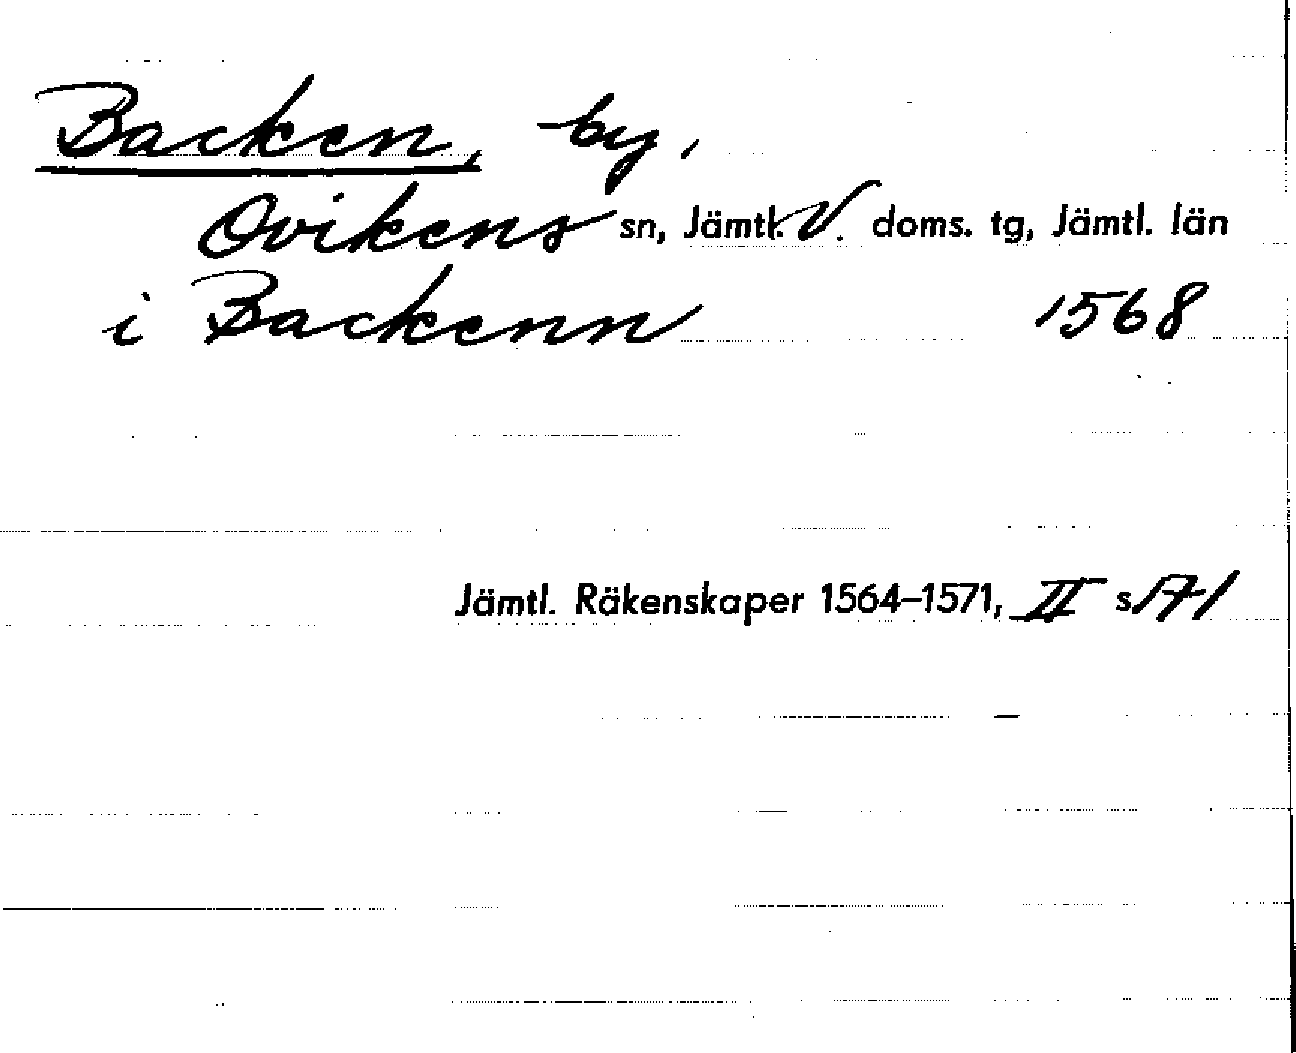 Backen, by,
Ovikens sn, Jämtl. V. doms. tg, Jämtl. län
i Backenn 1568
Jämtl. Räkenskaper 1564–1571, II s 171